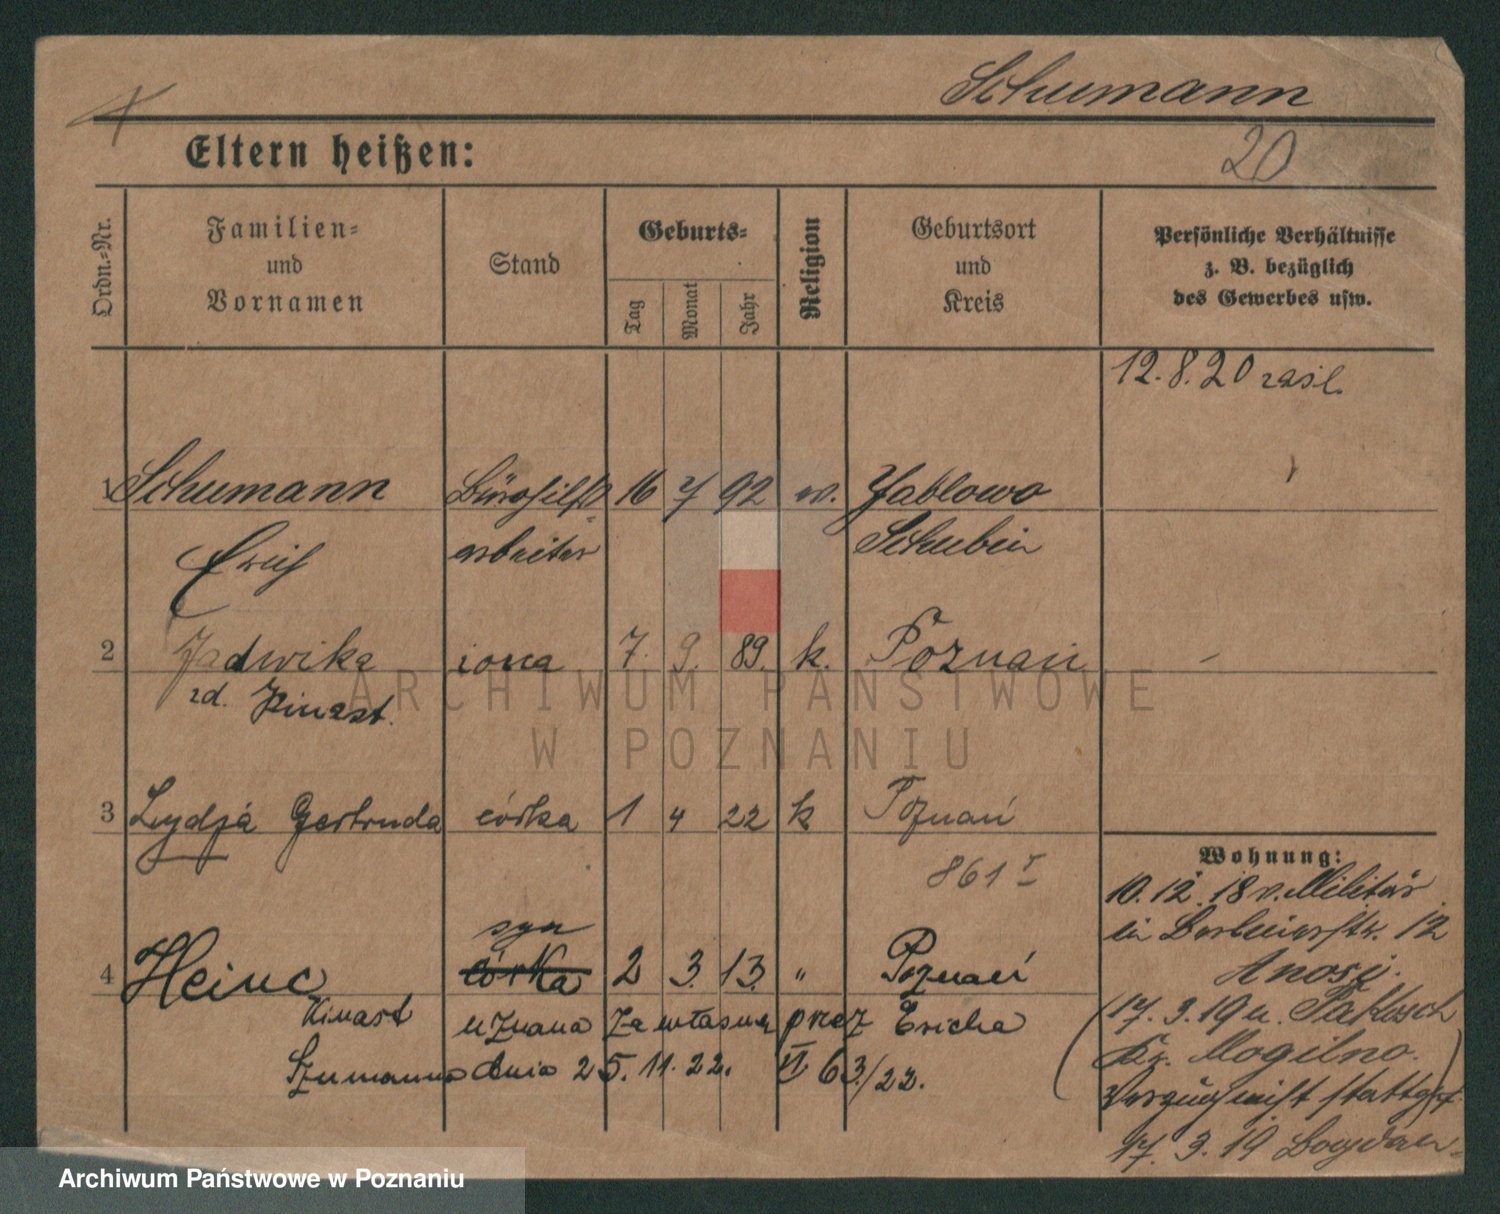 Schumann
20
Eltern heißen:
Ordn.-Nr.
Familien-
und
Vornamen
Stand
Geburts-
Tag
Monat
Jahr
Religion
Geburtsort
und
Kreis
Persönliche Verhältnisse
z. B. bezüglich
des Gewerbes usw.
12.8.20 zaśl.
1 Schumann Bürohilfs- 16 7 92 ev. Jablowo
Erich arbeiter Schubin
2 Jadwika żona 7. 9. 89. k. Poznań
zd. Kinast.
3 Lydja Gertruda córka 1 4 22 k Poznań
861
Wohnung:
10.12.18 v. Militär
in Berlinerstr. 12
syn
4 Heinc córka 2 3. 13. " Poznań
Kinast uznana za własne przez Ericha
Szumanna dnia 25.11.22. II 63/22.
17.3.19 n. Pakosch
Kr. Mogilno.
17.3.19
ARCHIWUM PAŃSTWOWE
W POZNANIU
Archiwum Państwowe w Poznaniu